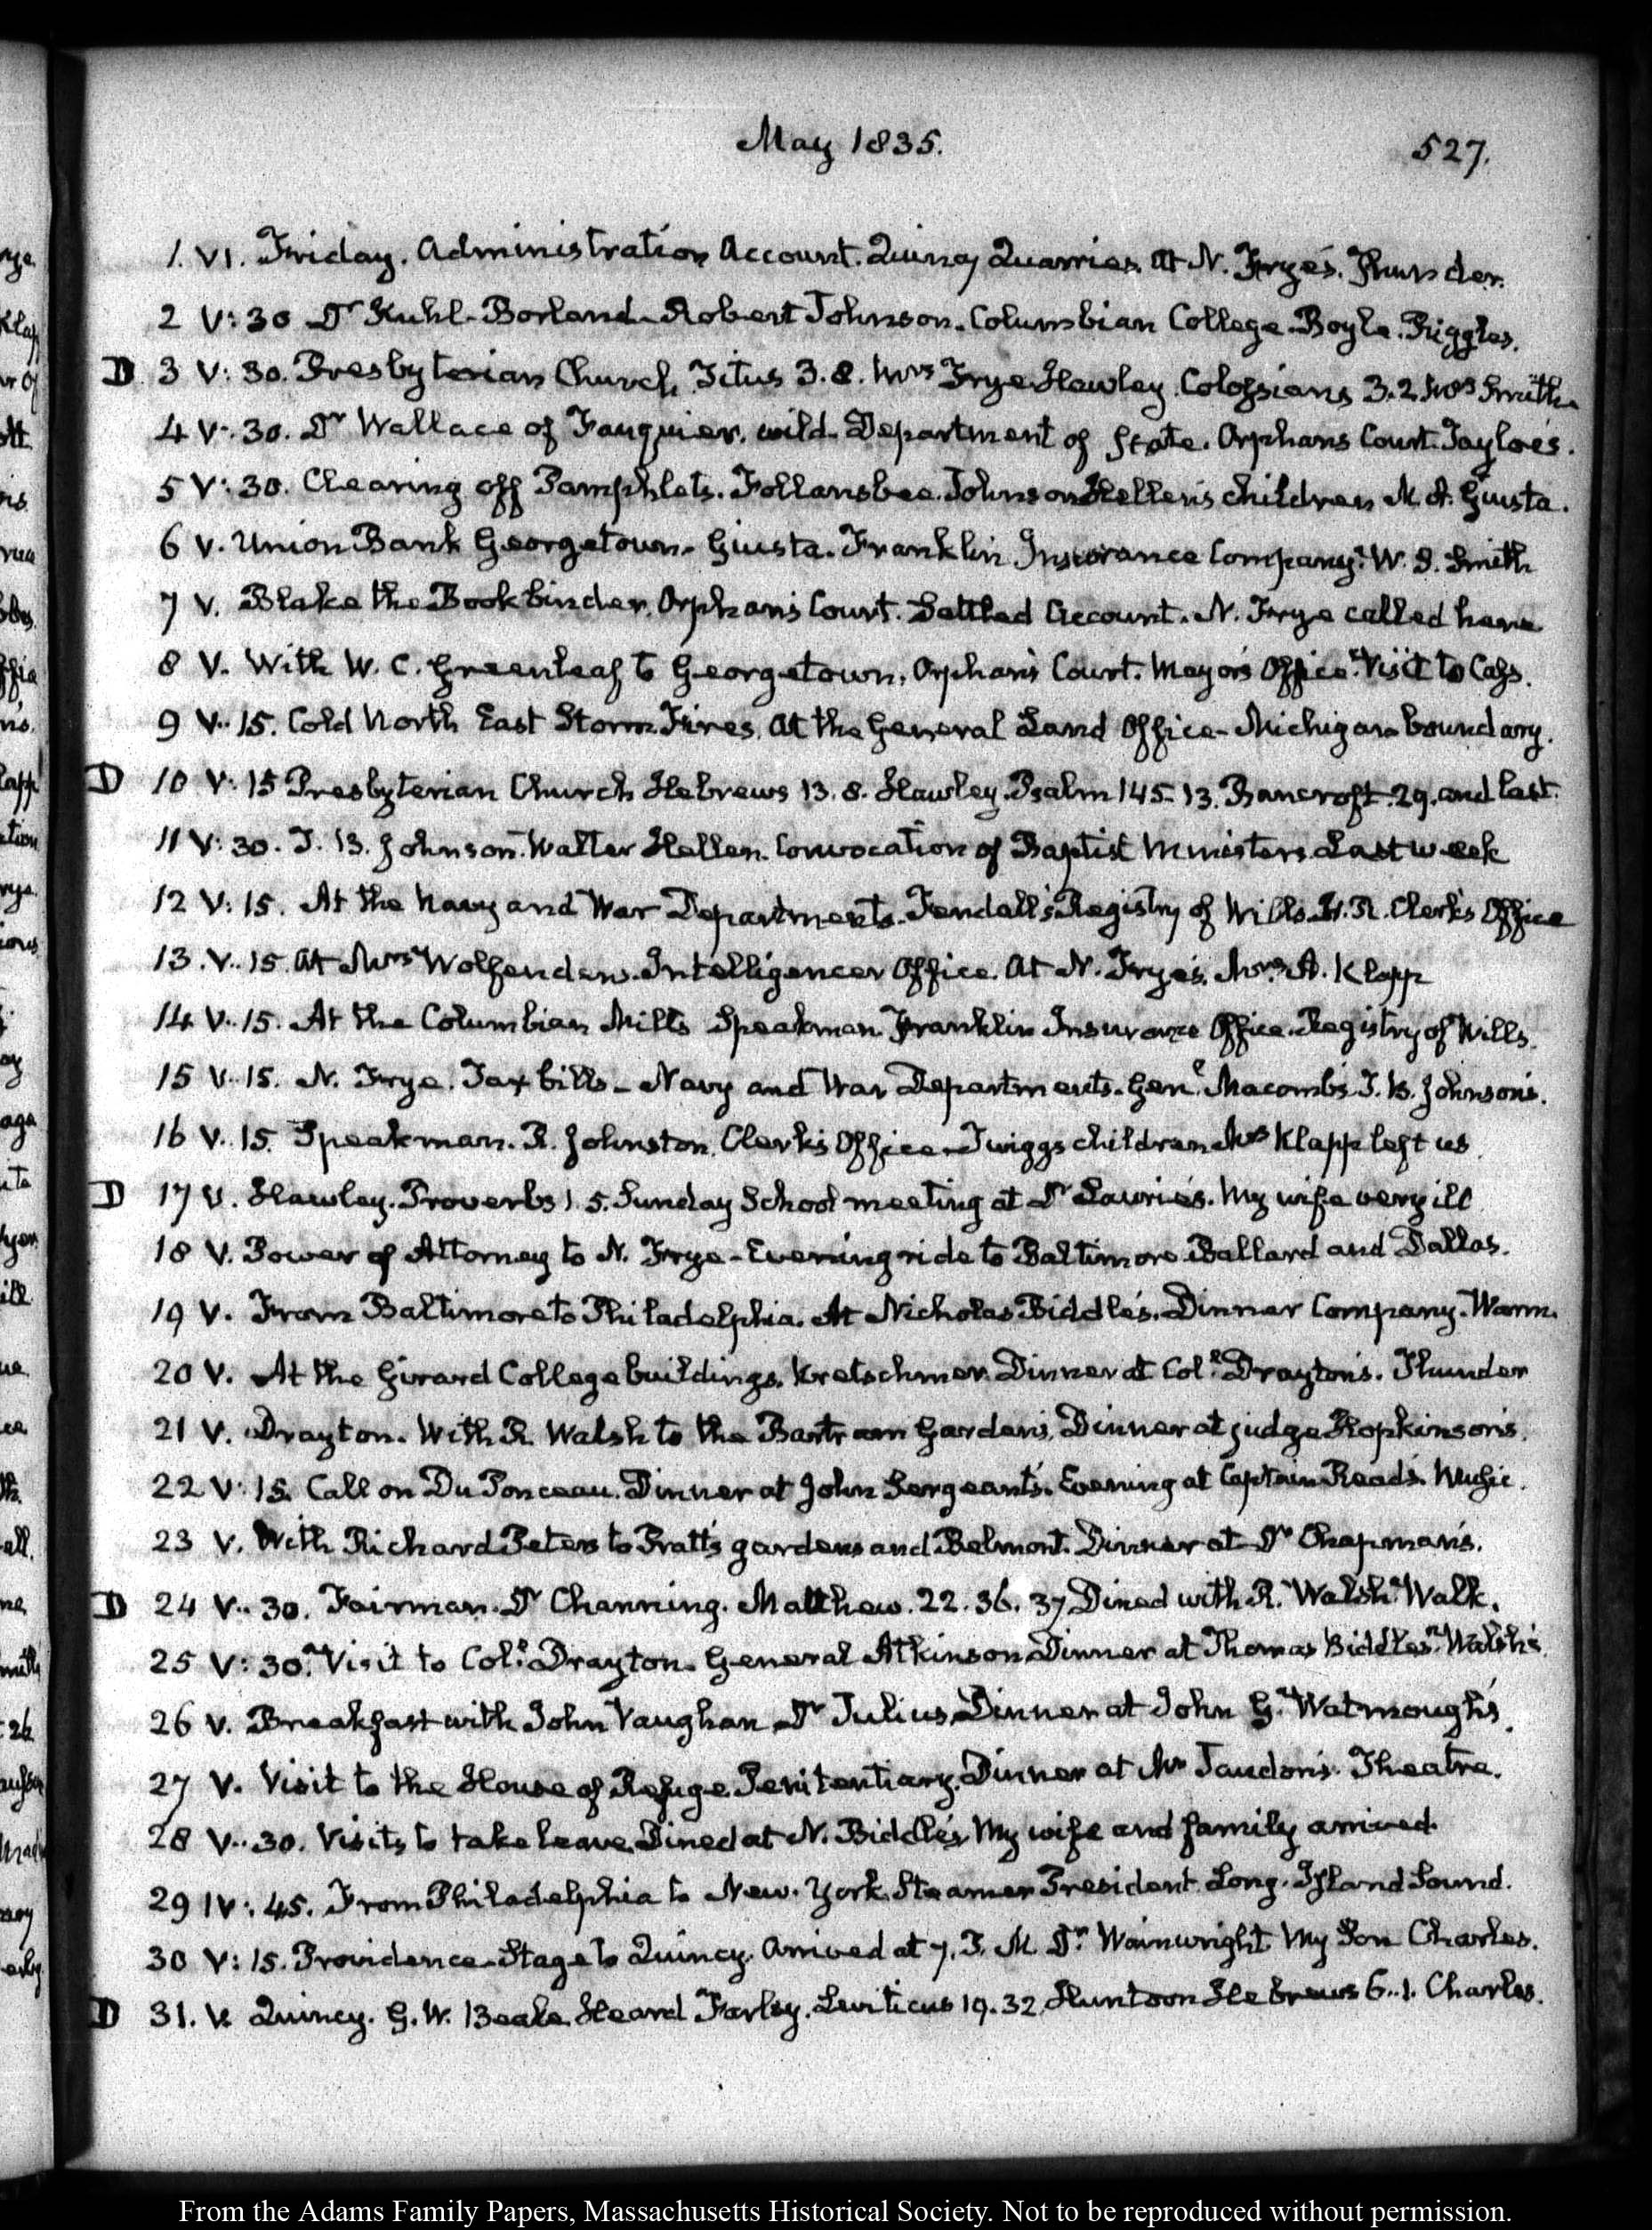 May 1835.
527.
1. VI. Friday. Administration Account. Quincy Quarries. At N. Frye's. Thunder.
2 V:30 Dr Kuhl. Borland. Robert Johnson. Columbian College. Boyle. Riggles.
D 3 V:30. Presbyterian Church. Titus 3.8. Mrs Frye Hawley. Colossians 3.2. Mrs Smith.
4 V.30. Dr Wallace of Fauquier. wild. Department of State. Orphans Court. Tayloe's.
5 V:30. Clearing off Pamphlets. Follansbee. Johnson Hellen's children M. A. Giusta.
6 V. Union Bank Georgetown. Giusta. Franklin Insurance Company. W. S. Smith
7 V. Blake the Bookbinder. Orphan's Court. Settled Account. N. Frye called here
8 V. With W. C. Greenleaf to Georgetown. Orphan's Court. Mayor's Office. Visit to Cass.
9 V..15. Cold North East Storm. Fires. At the General Land Office. Michigan boundary.
D 10 V:15 Presbyterian Church Hebrews 13.8. Hawley. Psalm 145.13. Bancroft. 29. and last.
11 V:30. T. B. Johnson. Walter Hellen. Convocation of Baptist Ministers. Last week
12 V:15. At the Navy and War Departments. Fendall's Registry of Wills. H.R. Clerk's Office
13. V..15. At Mrs Wolfenden's. Intelligencer Office. At N. Frye's. Mrs A. Klapp
14 V..15. At the Columbian Mills Speakman. Franklin Insurance Office. Registry of Wills.
15 V..15. N. Frye. Tax bills. Navy and War Departments. Genl Macomb's. T. B. Johnson's.
16 V..15. Speakman. R. Johnston. Clerk's Office. Twiggs children Mrs Klapp left us.
D 17 V. Hawley. Proverbs 1.5. Sunday School meeting at Dr Laurie's. My wife very ill
18 V. Power of Attorney to N. Frye. Evening ride to Baltimore. Ballard and Dallas.
19 V. From Baltimore to Philadelphia. At Nicholas Biddle's. Dinner Company. Warm.
20 V. At the Girard College buildings. Kretschmer. Dinner at Coll Drayton's. Thunder
21 V. Drayton. With R. Walsh to the Bartram Garden's. Dinner at judge Hopkinson's.
22 V:15. Call on Du Ponceau. Dinner at John Sergeant's. Evening at Captain Read's. Music.
23 V. With Richard Peters to Pratt's gardens and Belmont. Dinner at Dr Chapman's.
D 24 V..30. Fairman. Dr Channing. Matthew. 22.36.37 Dined with R. Walsh. Walk.
25 V:30. Visit to Coll Drayton. General Atkinson Dinner at Thomas Biddle's. Walsh's.
26 V. Breakfast with John Vaughan Dr Julius. Dinner at John G. Watmough's.
27 V. Visit to the House of Refuge. Penitentiary. Dinner at Mr Jaudon's. Theatre.
28 V..30. Visits to take leave. Dined at N. Biddle's. My wife and family arrived.
29 IV:45. From Philadelphia to New. York. Steamer President. Long. Island Sound.
30 V:15. Providence. Stage to Quincy. Arrived at 7. P. M. Dr Wainwright. My Son Charles.
D 31. V. Quincy. G. W. Beale. Heard Farley. Leviticus 19.32. Huntoon Hebrews 6..1. Charles.
From the Adams Family Papers, Massachusetts Historical Society. Not to be reproduced without permission.